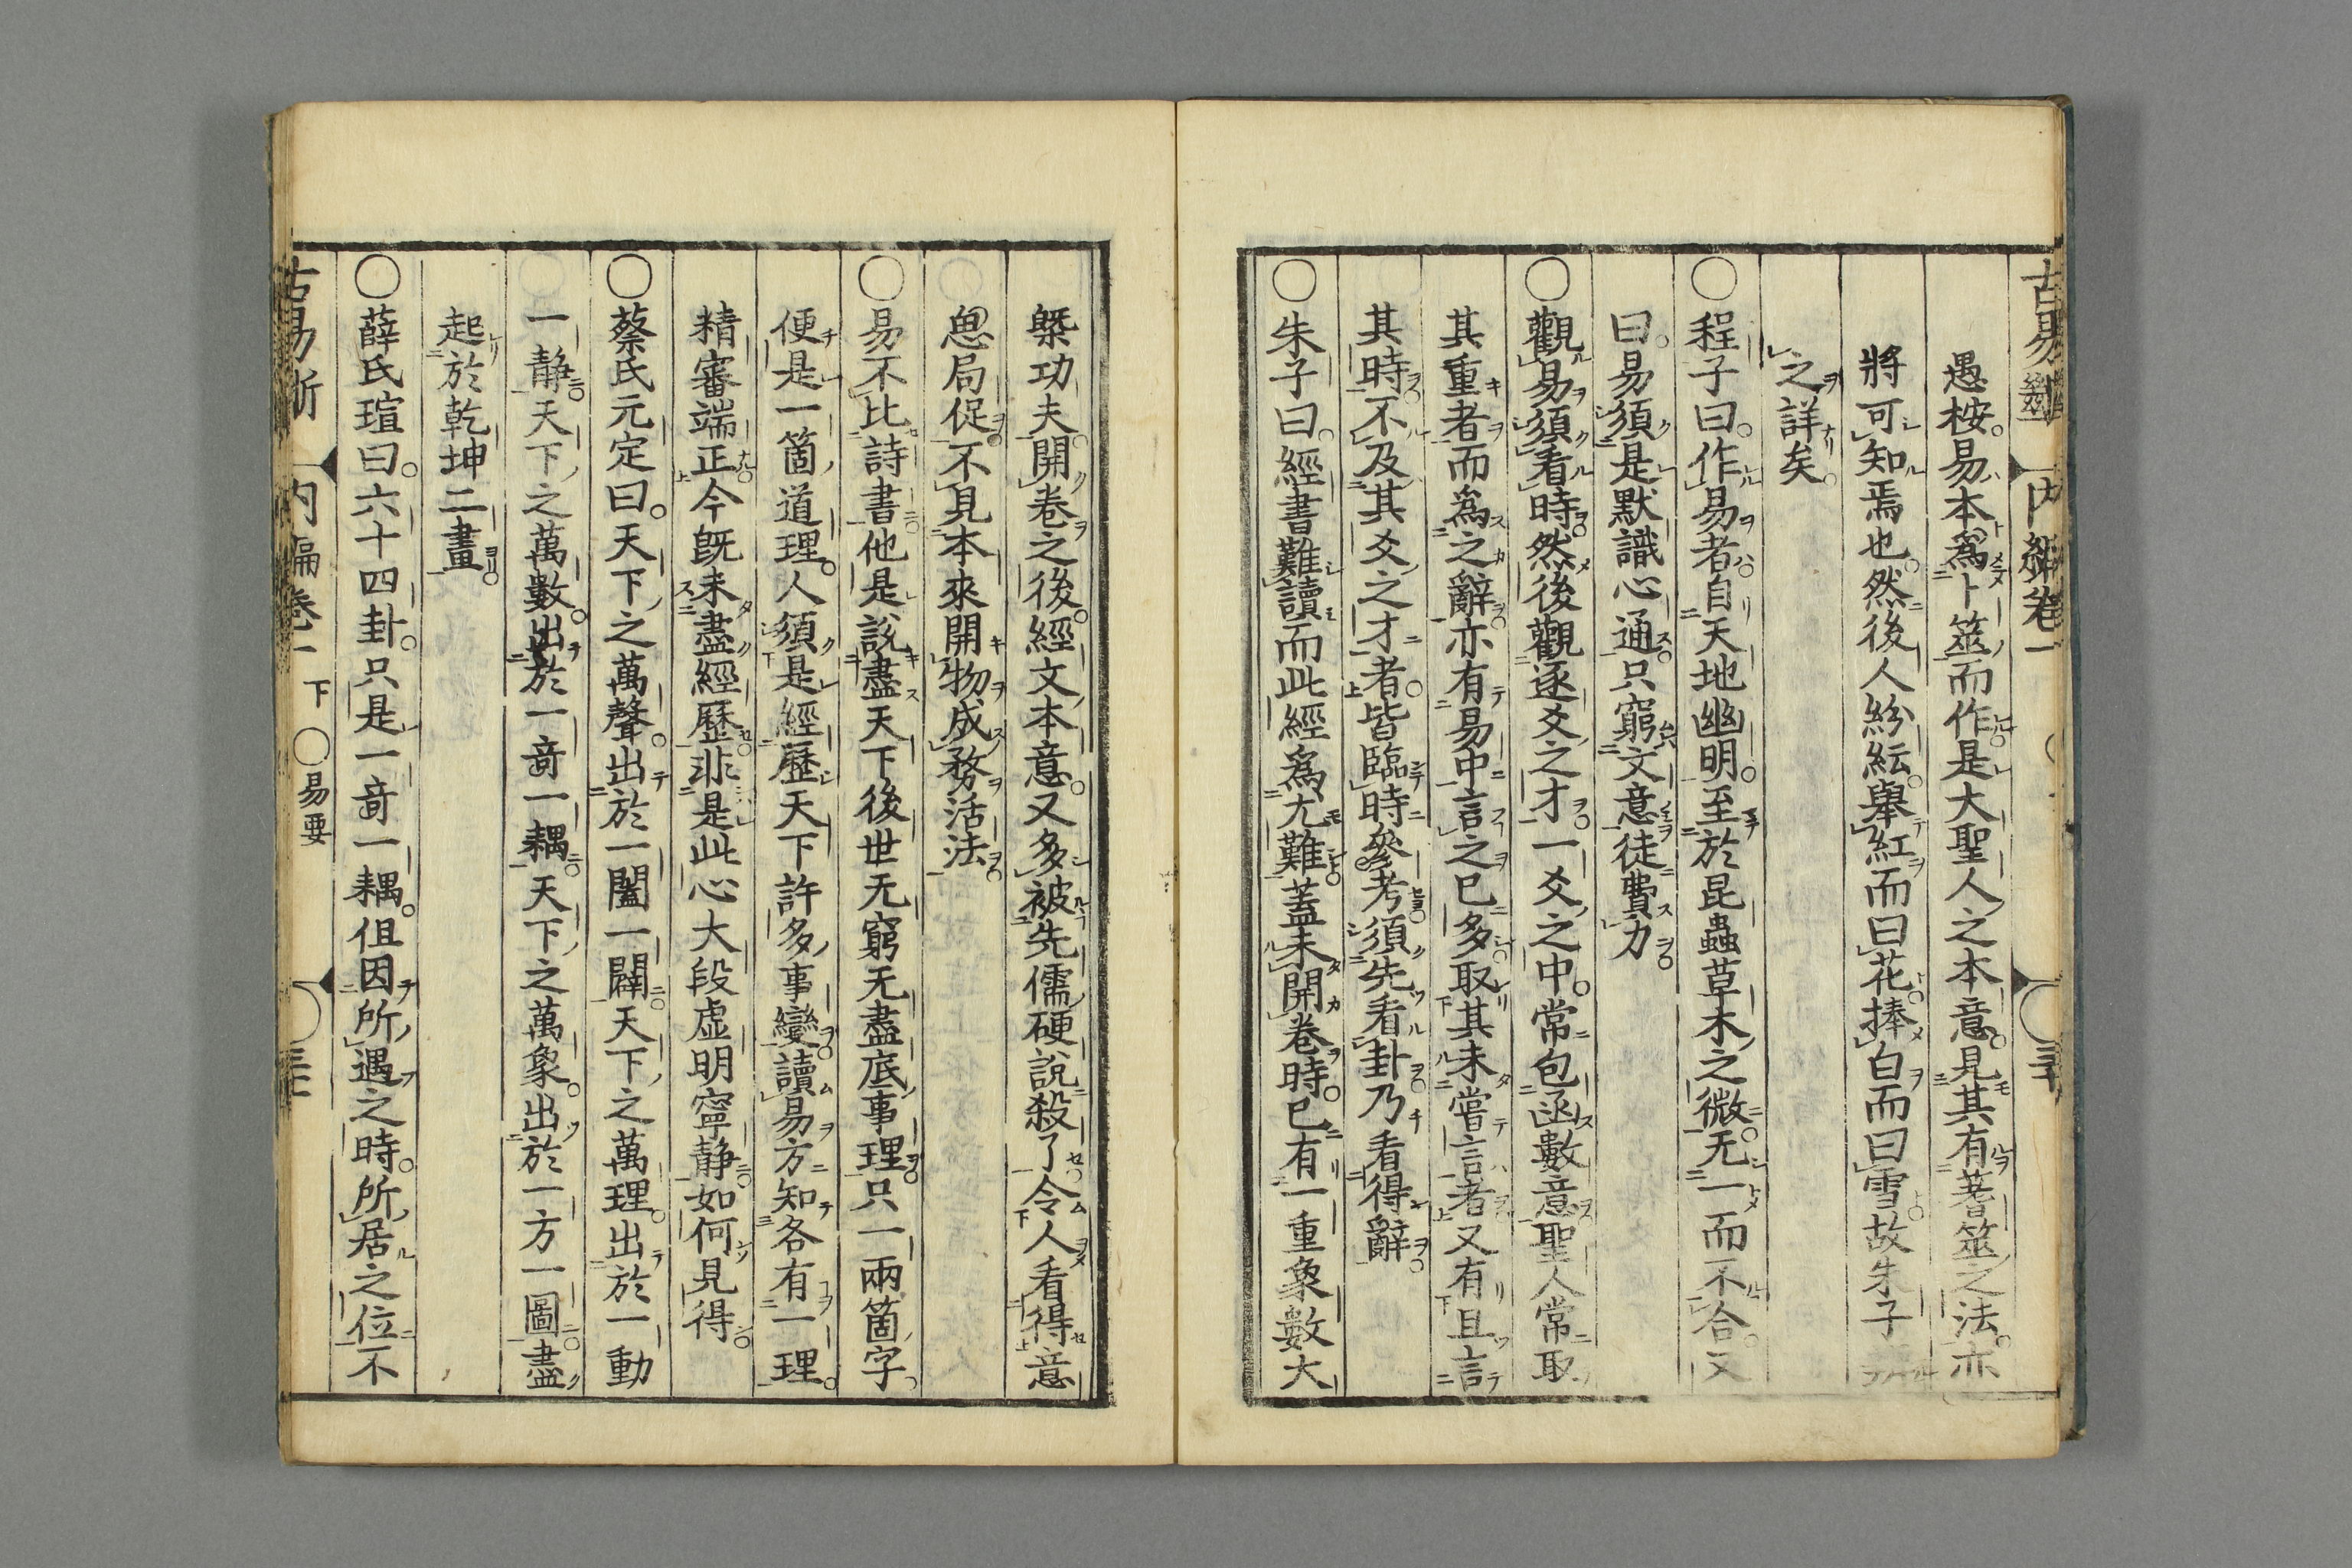 愚桉易本為卜筮而作是大聖人之本意見其有蓍筮之法亦
將可知焉也然後人紛紜舉紅而曰花捧白而曰雪故朱子
之詳矣
○程子曰作易者自天地幽明至於昆蟲草木之微无一而不合又
曰易須是默識心通只窮文意徒費力
○觀易須看時然後觀逐爻之才一爻之中常包函數意聖人常取
其重者而為之辭亦有易中言之已多取其未嘗言者又有且言
其時不及其爻之才者皆臨時參考須先看卦乃看得辭
○朱子曰經書難讀而此經為尤難蓋未開卷時已有一重象數大
槩功夫開卷之後經文本意又多被先儒硬說殺了令人看得意
思局促不見本來開物成務活法
○易不比詩書他是說盡天下後世无窮无盡底事理只一兩箇字
便是一箇道理人須是經歷天下許多事變讀易方知各有一理
精審端正今既未盡經歷非是此心大段虛明寧静如何見得
○蔡氏元定曰天下之萬聲出於一闔一闢天下之萬理出於一動
一静天下之萬數出於一竒一耦天下之萬象出於一方一圖盡
起於乾坤二畫
○薛氏瑄曰六十四卦只是一竒一耦但因所遇之時所居之位不
内編卷一 下 ○易要